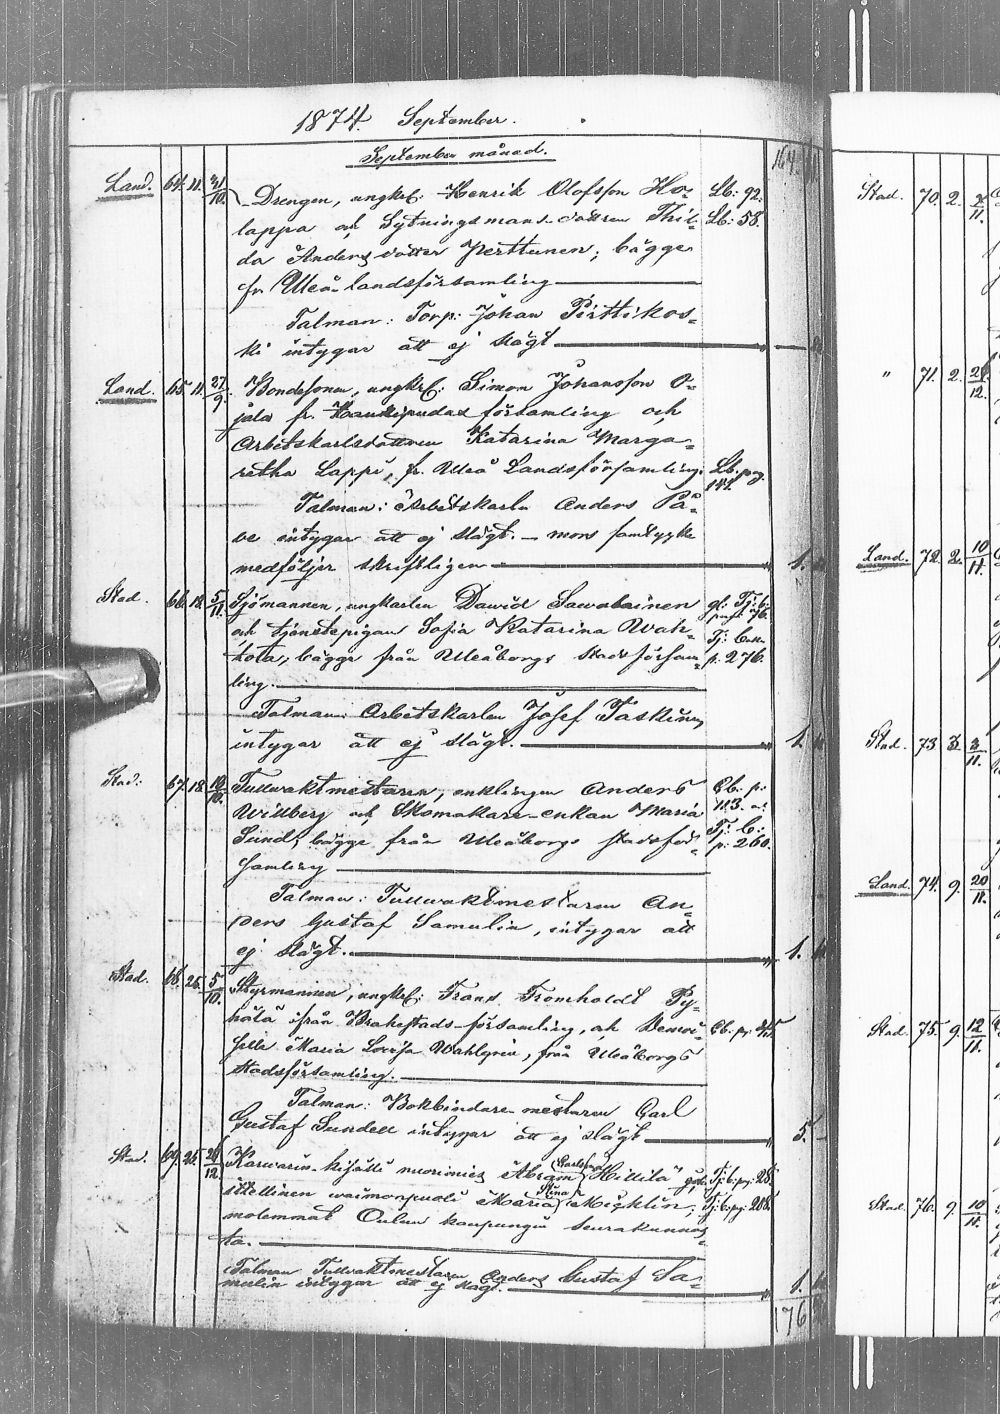 1874. September.
September månad. 164
Land. 64. 11. 31/10. Drengen, ungkrl: Henrik Olofsson Ho- Lb: 92.
lappa och Sytningsmans-dottren Thil- Lb: 58.
da Anders dotter Perttunen; bägge
fr. Uleå landsförsamling
Talman: Torp: Johan Pirttikos-
ki intygar att ej slägt
Land. 65. 11. 27/9. Bondesonen, ungkrl: Simon Johansson O-
jala fr. Haukipudas församling och
Arbetskarlsdottren Katarina Marga-
retha Lappi, fr. Uleå Landsförsamling. Lb. pag.
141.
Talman: Arbetskarlen Anders Pä-
ve intygar att ej slägt. – mons samtycke
medföljer skriftligen 1.
Stad. 66. 18. 5/11. Sjömannen, ungkarlen Dawid Sawolainen gl: Tj: b:
pag: 76.
och tjenstepigan Sofia Katarina Wah- Tj: bok.
kola, bägge från Uleåborgs Stadsförsam- p. 276.
ling.
Talman: Arbetskarlen Josef Taskinen
intygar att ej slägt. 1.
Stad: 67. 18. 10/10. Tullwaktmestaren, enklingen Anders Cb. p:
Widberg och Skomakare-enkan Maria 113.
Sund, bägge från Uleåborgs stadsför- Tj: b:
p: 260.
samling
Talman: Tullwaktmestaren An-
ders Gustaf Samulin, intygar att
ej slägt. 1.
Stad. 68. 25. 5/10. Styrmannen, ungkrl: Frans Fromholdt Py-
hälä ifrån Brahestads-församling, och Demoi- Cb. pag:
selle Maria Lovisa Wahlgren, från Uleåborgs
Stadsförsamling.
Talman: Bokbindare-mestaren Carl
Gustaf Sundell intygar att ej slägt 5. –
Stad. 69. 25. /12. Karwarin-kisälli nuorimies Abram Hiltilä Tj: b: pag: 28.
itsellinen waimonpuoli Maria Stina Micklin; Tj: b: pag: 288.
molemmat Oulun kaupungin seurakunnas-
ta.
Talman Tullwaktmestaren Anders Gustaf Sa-
mulin intygar att ej slägt. 1.
176
Stad. 70. 2. /11.
" 71. 2. 28/12.
Land. 72. 2. 10/11.
Stad. 73 3. 3/11.
Land. 74. 9. 20/11.
Stad. 75. 9. 12/11.
Stad. 76. 9. 10/11.